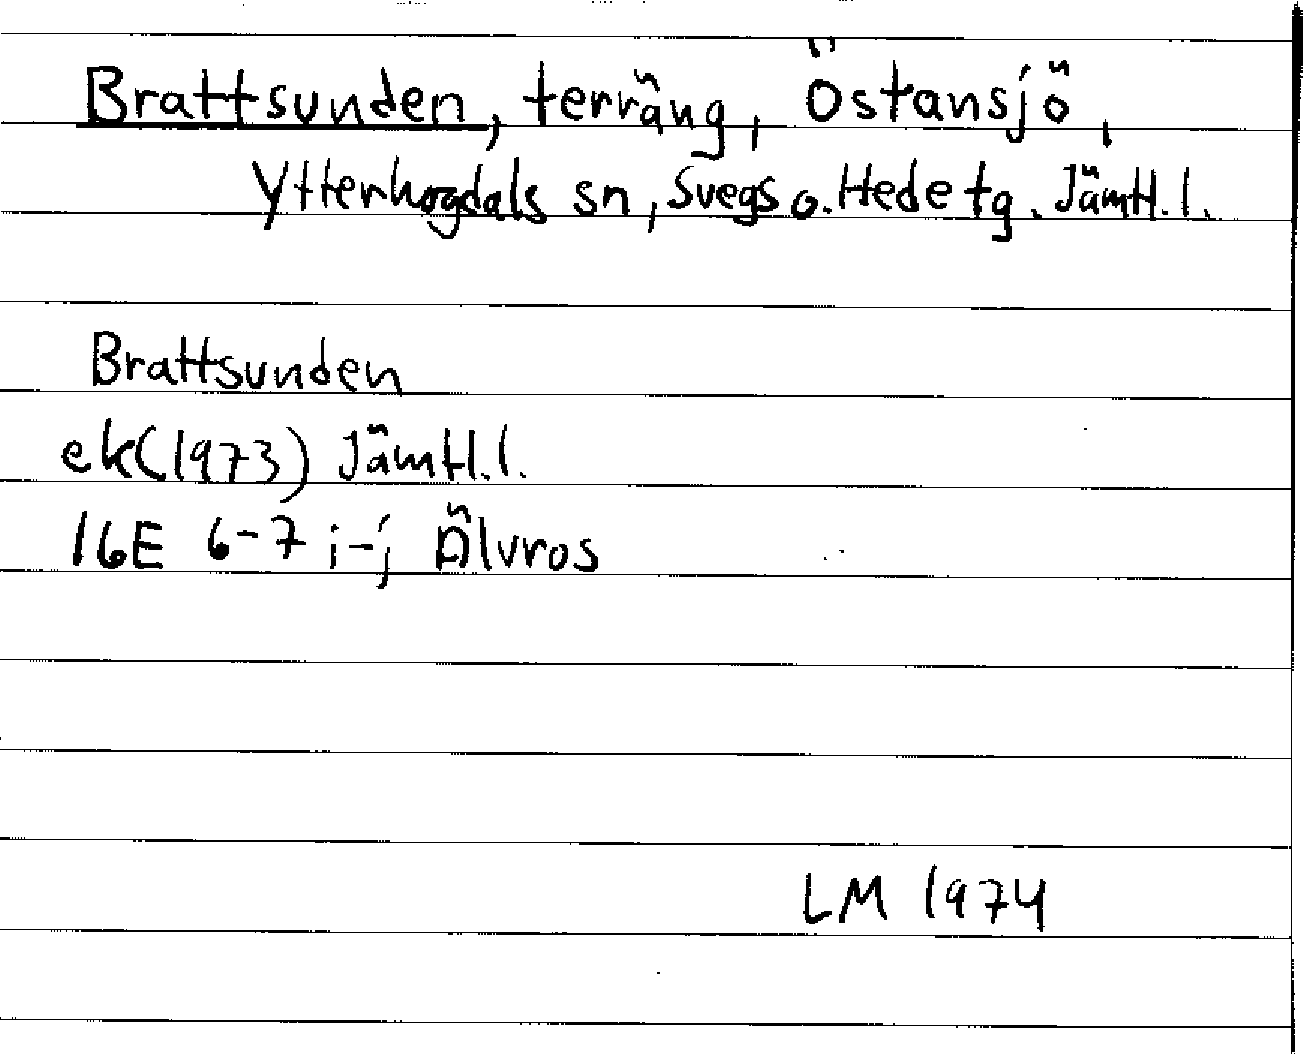 Brattsunden, terräng, Östansjö,
Ytterhogdals sn, Svegs o. Hede tg. Jämtl. l.
Brattsunden
ek(1973) Jämtl. l.
16E 6-7 i-j Älvros
LM 1974